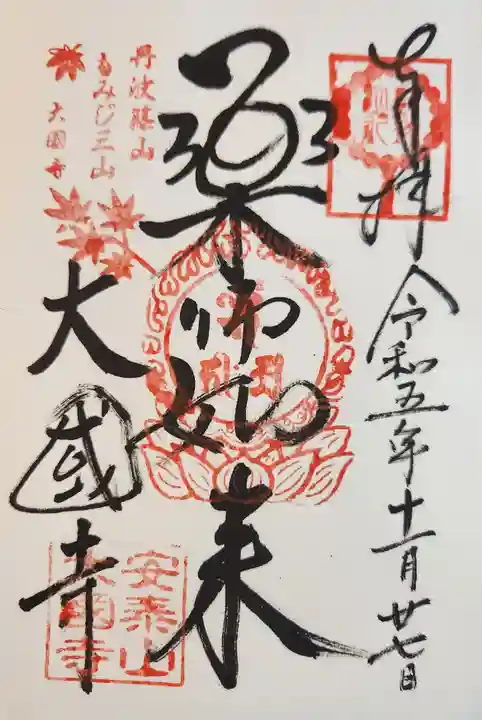 奉拝
令和五年十一月廿七日
薬師如来
大國寺
丹波篠山
もみじ三山
大國寺
安泰山
大國寺